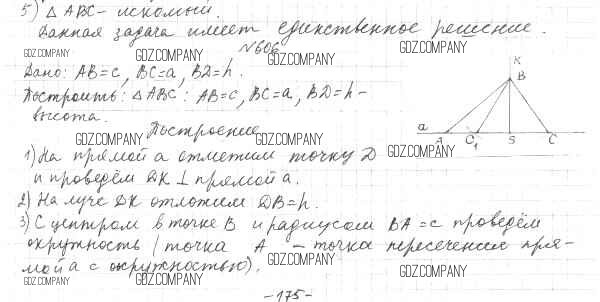 5) △ABC - искомый.
Данная задача имеет единственное решение.
GDZ.COMPANY
GDZ.COMPANY
GDZ.COMPANY
№606
Дано: AB=c, BC=a, BD=h.
Построить: △ABC: AB=c, BC=a, BD=h -
высота.
K
B
a
A
C₁
S
C
GDZ.COMPANY
GDZ.COMPANY
GDZ.COMPANY
Построение
1) На прямой a отметим точку D
и проведём DK ⊥ прямой a.
2) На луче DK отложим DB=h.
3) С центром в точке B и радиусом BA=c проведём
окружность (точка A - точка пересечения пря-
мой a с окружностью).
GDZ.COMPANY
GDZ.COMPANY
GDZ.COMPANY
-175-